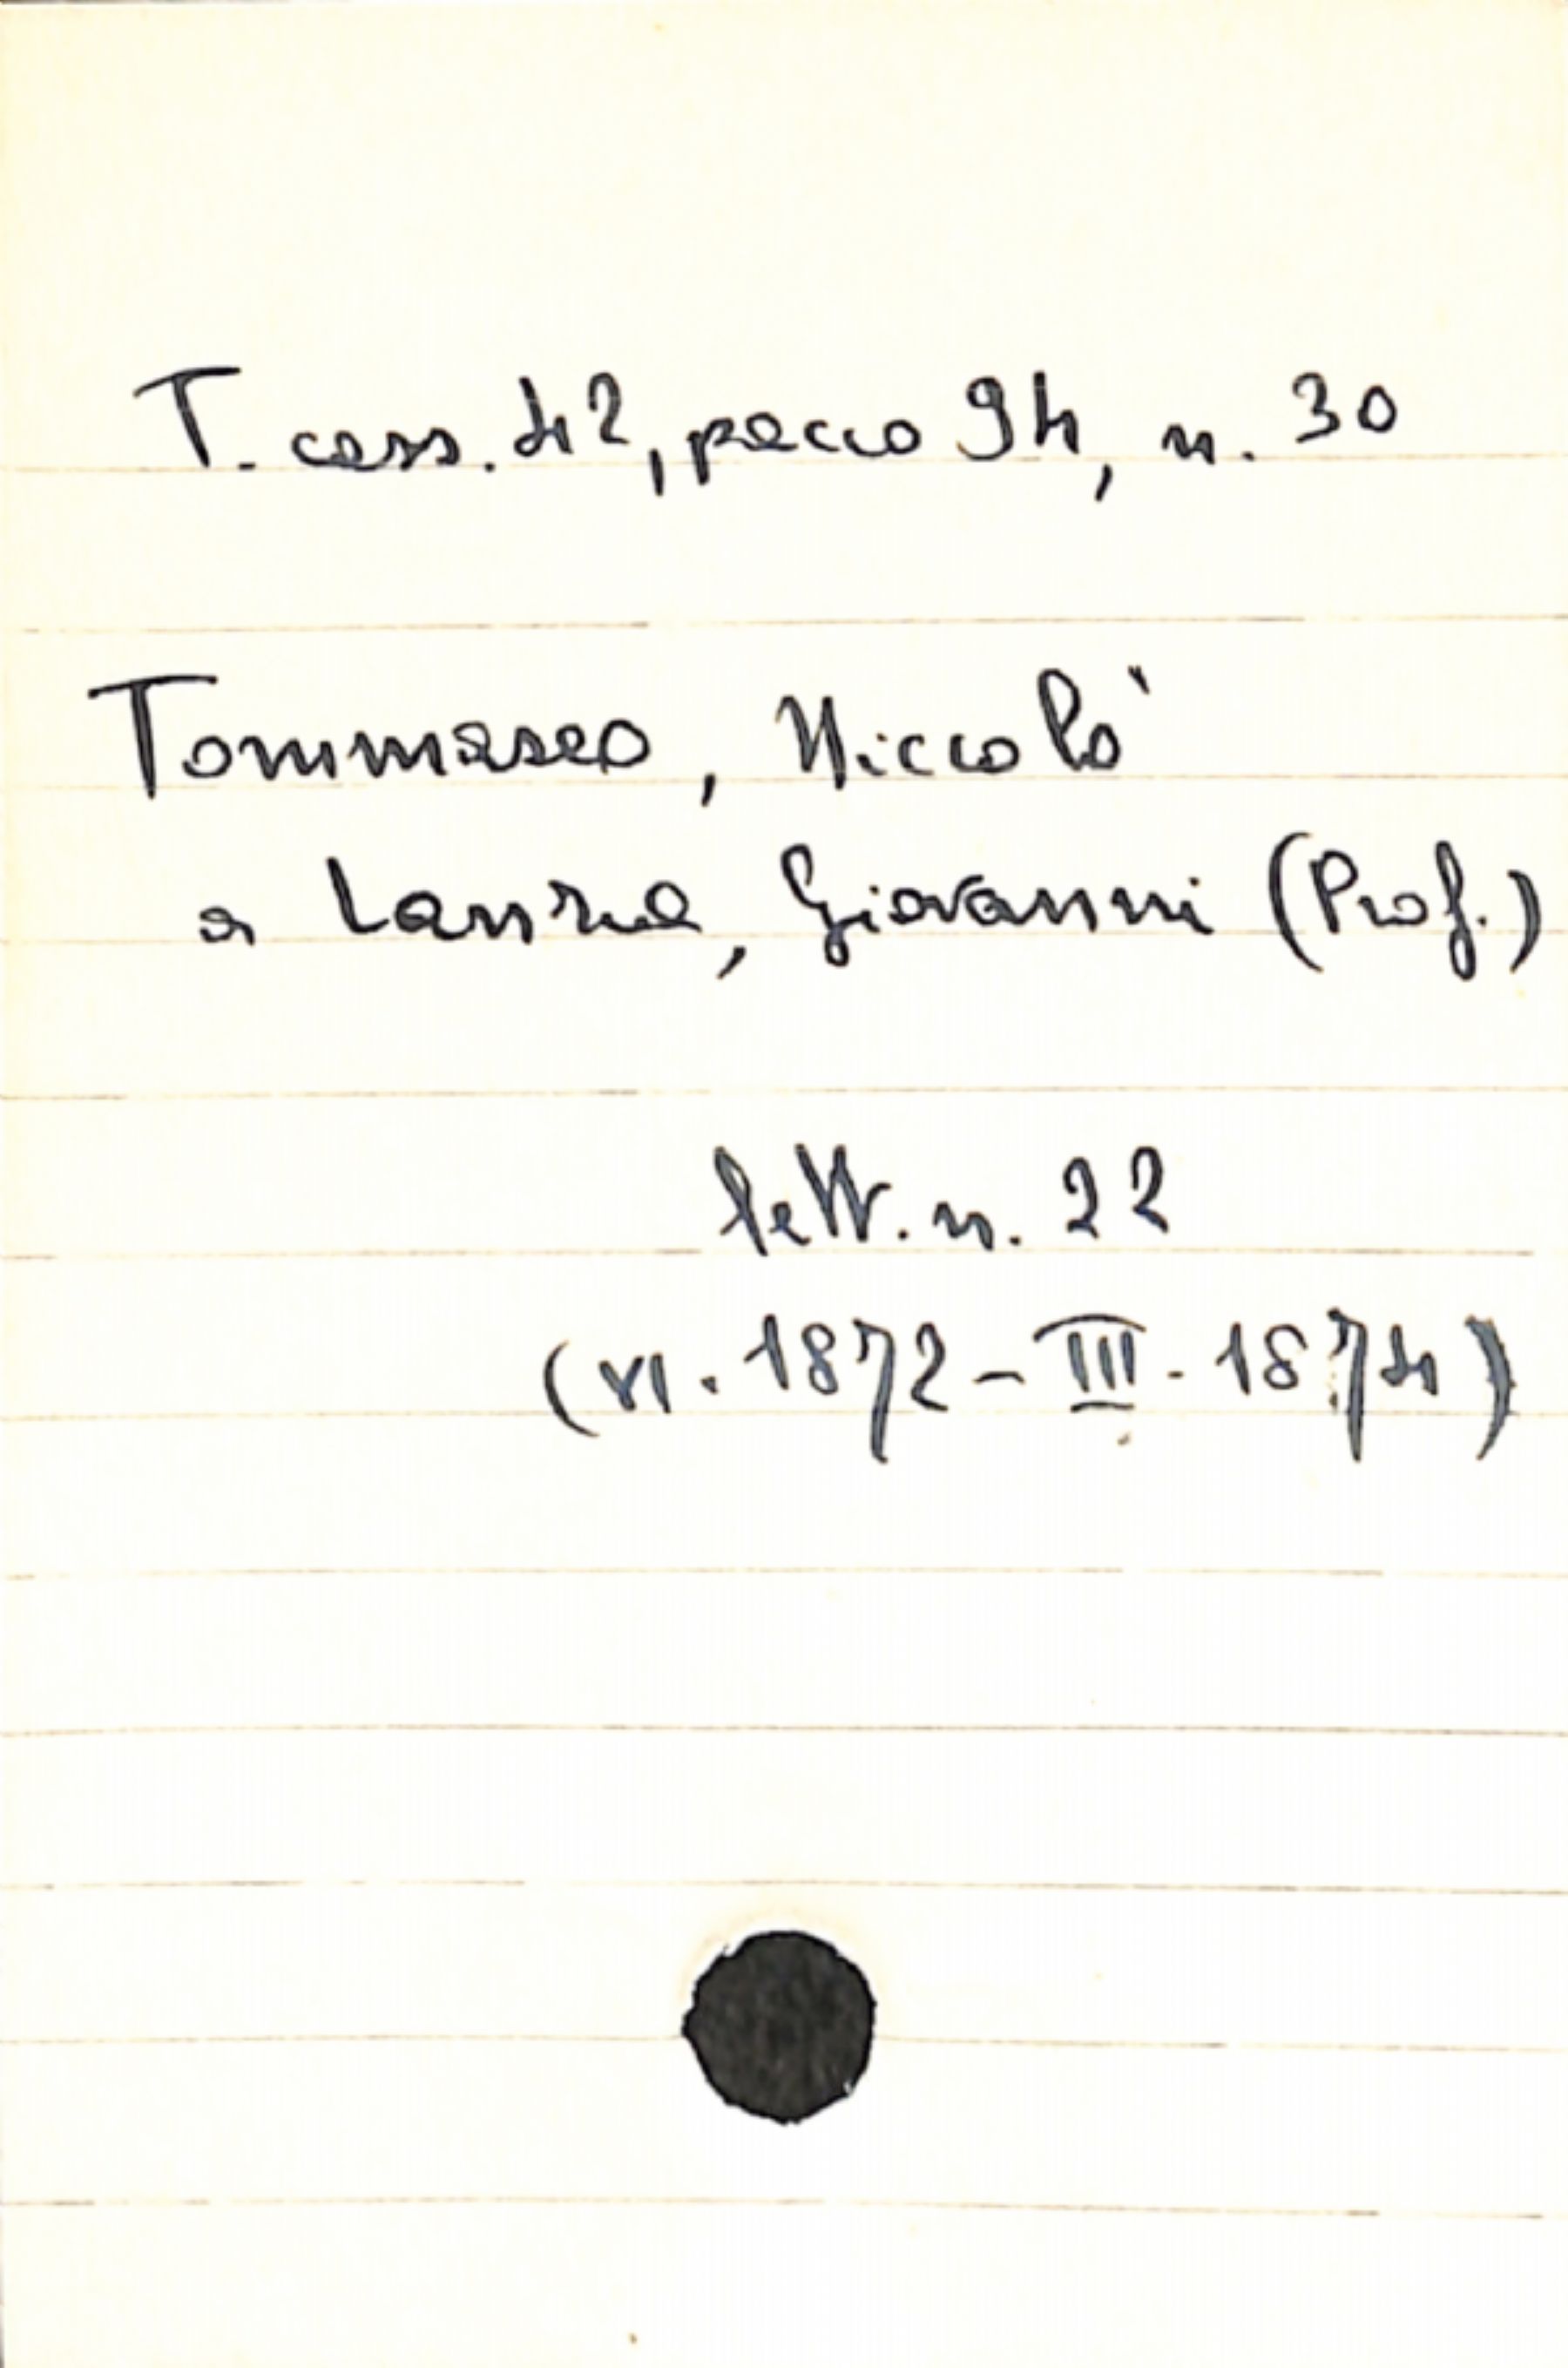 T. cass. 42, pacco 94, n. 30
Tommaseo, Niccolò
a Lanza, Giovanni (Prof.)
lett. n. 22
(VI. 1872 - III. 1874)